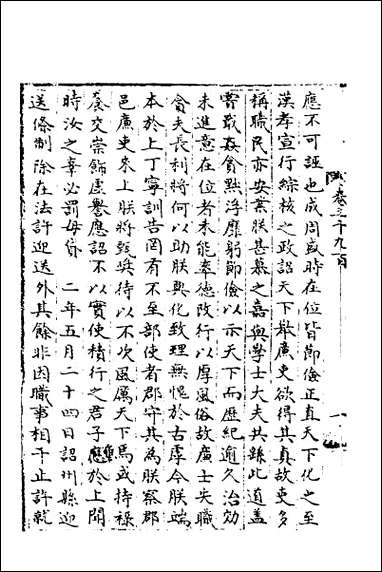 應不可誣也成周盛時在位皆節儉正直天下化之至
漢孝宣行綜核之政詔天下敢廉吏欲得其真故吏多
稱職民亦安業朕甚慕之嘉與學士大夫共繇此道蓋
嘗戢姦貪黜浮靡躬節儉以示天下而歷紀逾久治効
未進意在位者未能奉德改行以厚風俗故廉士失職
貪夫長利將何以助朕興化致理無愧於古虖今朕端
本於上丁寧訓告罔有不至部使者郡守其為朕察郡
邑廉吏來上朕將甄奬待以不次風厲天下焉或持祿
養交崇飾虛譽應詔不以實使積行之君子壅於上聞
時汝之辜必罰毋貸 二年五月二十四日詔州縣迎
送條制除在法許迎送外其餘非因職事相干止許就
卷三千九百 一